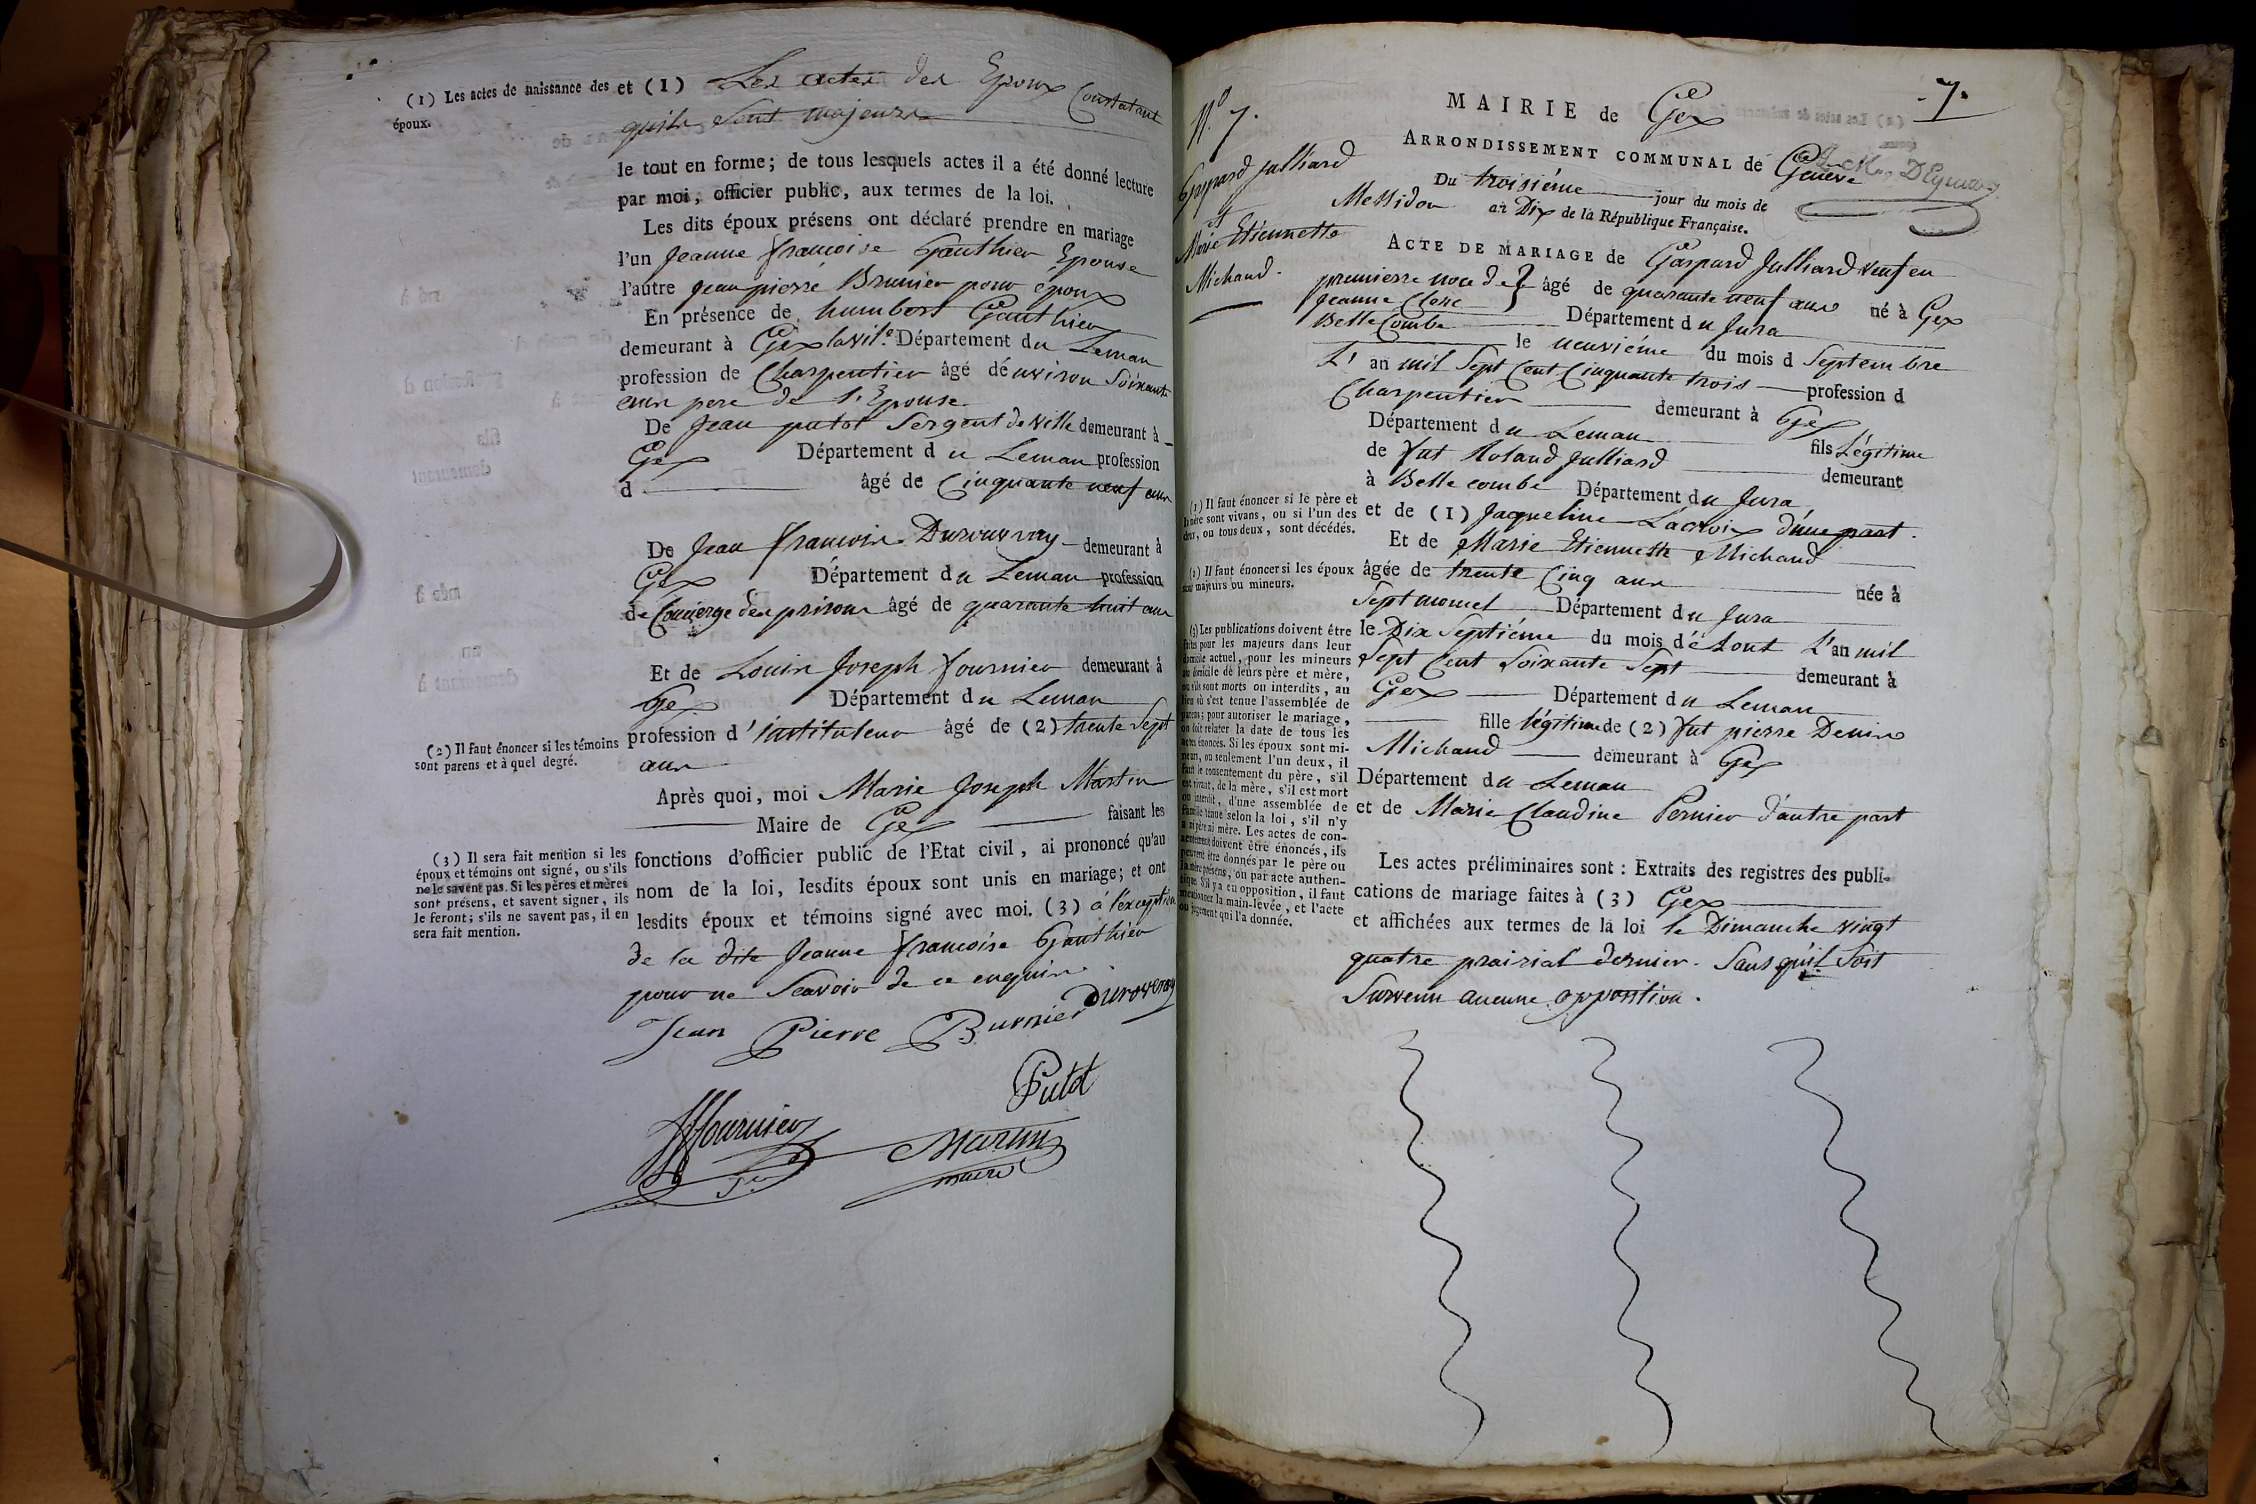 (1) Les actes de naissance des époux.
et (1) Les actes des Epoux Constatant
quils sont majeurs
le tout en forme; de tous lesquels actes il a été donné lecture
par moi, officier public, aux termes de la loi.
Les dits époux présens ont déclaré prendre en mariage
l'un Jeanne francoise Gauthier Epouse
l'autre Jean pierre Brunier pour époux
En présence de humbert Gauthier
demeurant à Gex la vil.e Département du Leman
profession de Charpentier âgé dénviron Soixante
ans pere de l'Epouse
De Jean putot Sergent de ville demeurant à
Gex Département du Leman profession
d âgé de Cinquante neuf ans
De Jean francois Durouvray demeurant à
Gex Département du Leman profession
de Concierge des prisons âgé de quarante huit ans
Et de Louis Joseph fournier demeurant à
Gex Département du Leman
profession d'instituteur âgé de (2) trente Sept
ans
(2) Il faut énoncer si les témoins
sont parens et à quel degré.
Après quoi, moi Marie Joseph Martin
Maire de Gex faisant les
fonctions d'officier public de l'Etat civil, ai prononcé qu'au
nom de la loi, lesdits époux sont unis en mariage; et ont
lesdits époux et témoins signé avec moi. (3) à l'exception
de la dite Jeanne francoise Gauthier
pour ne Scavoir de ce enquise.
(3) Il sera fait mention si les
époux et témoins ont signé, ou s'ils
ne le savent pas. Si les pères et mères
sont présens, et savent signer, ils
le feront; s'ils ne savent pas, il en
sera fait mention.
Jean Pierre Burnier Duroveray
Putot
fournier
Martin
maire
-7-
N.o 7.
Gaspard Julliard
et
Marie Etiennette
Michaud.
MAIRIE de Gex
ARRONDISSEMENT COMMUNAL de Genève
Du troisiéme jour du mois de
Messidor an Dix de la République Française.
ACTE DE MARIAGE de Gaspard Julliard veuf en
premierre noce de Jeanne Clerc âgé de quarante neuf ans né à Gex
Belle Combe Département du Jura
le neuviéme du mois d Septembre
L'an mil Sept Cent Cinquante trois profession d
Charpentier demeurant à Gex
Département du Leman fils Légitime
de fut Roland Julliard demeurant
à Belle combe Département du Jura
et de (1) Jaqueline Lacroix d'une part.
Et de Marie Etiennette Michaud
âgée de trente Cinq ans née à
Septmoncel Département du Jura
le Dix Septiéme du mois d'éAout L'an mil
Sept Cent Soixante Sept demeurant à
Gex Département du Leman
fille légitime de (2) fut pierre Denis
Michaud demeurant à Gex
Département du Leman
et de Marie Claudine Pernier d'autre part
(1) Il faut énoncer si le père et
la mère sont vivans, ou si l'un des
deux, ou tous deux, sont décédés.
(2) Il faut énoncer si les époux
sont majeurs ou mineurs.
(3) Les publications doivent être
faites pour les majeurs dans leur
domicile actuel, pour les mineurs
au domicile de leurs père et mère,
ou s'ils sont morts ou interdits, au
lieu où s'est tenue l'assemblée de
parens; pour autoriser le mariage,
on doit relater la date de tous les
actes énoncés. Si les époux sont mi-
neurs, ou seulement l'un deux, il
faut le consentement du père, s'il
est vivant, de la mère, s'il est mort
ou interdit, d'une assemblée de
famille tenue selon la loi, s'il n'y
a ni père ni mère. Les actes de con-
sentement doivent être énoncés, ils
peuvent être donnés par le père ou
la mère présens, ou par acte authen-
tique. S'il y a eu opposition, il faut
mentionner la main-levée, et l'acte
ou jugement qui l'a donnée.
Les actes préliminaires sont : Extraits des registres des publi-
cations de mariage faites à (3) Gex
et affichées aux termes de la loi le Dimanche vingt
quatre prairial dernier. Sans qu'il Soit
Survenu aucune opposition.